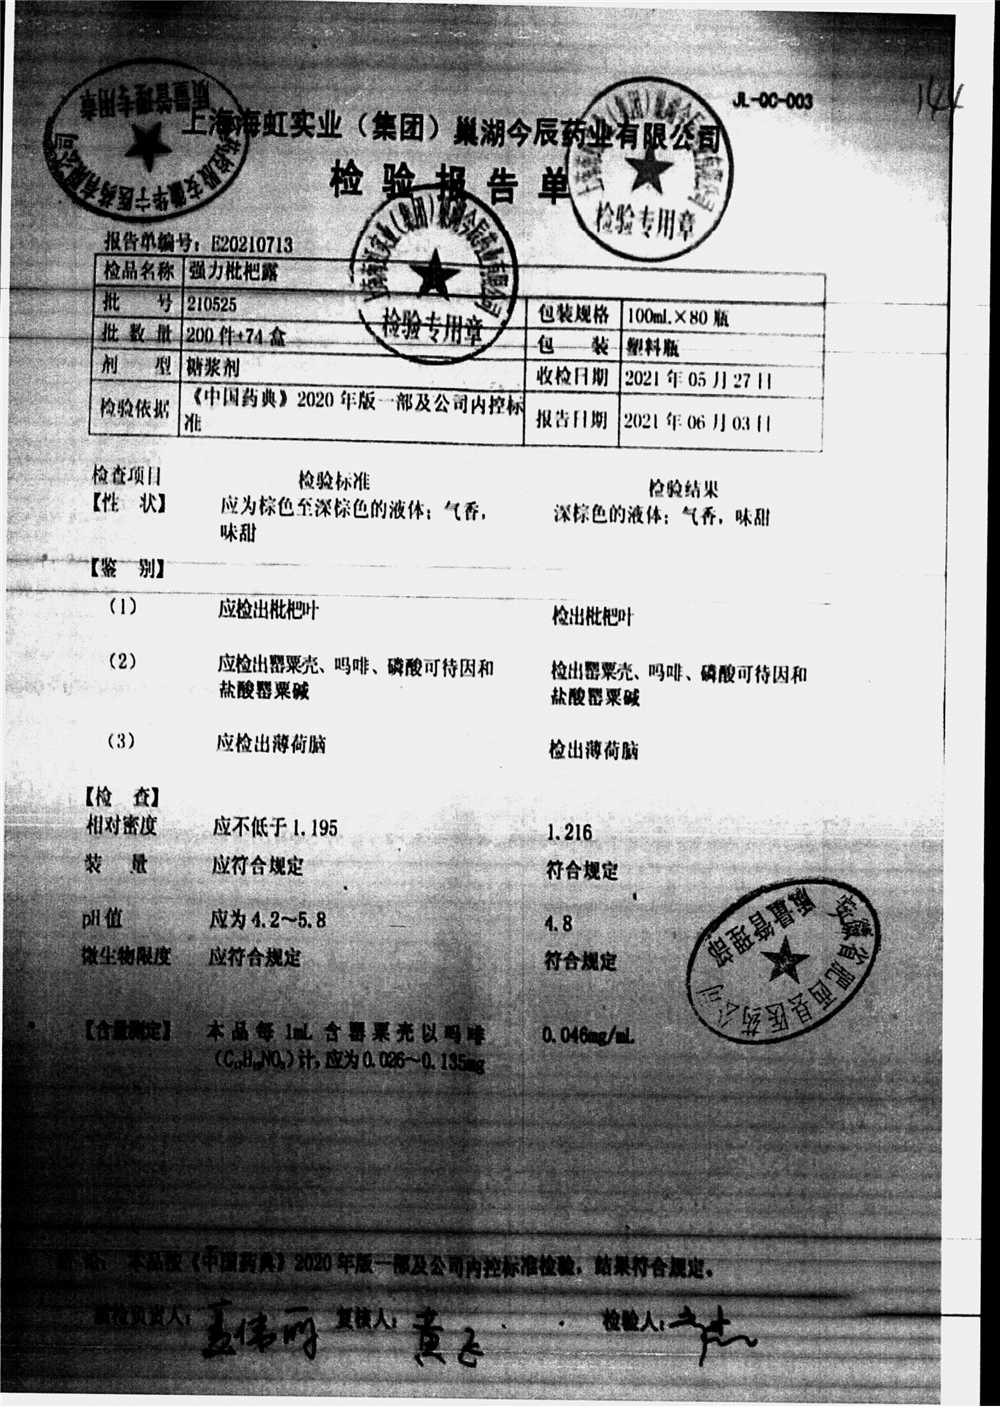 JL-QC-003
上海海虹实业（集团）巢湖今辰药业有限公司
检验报告单
报告单编号：E20210713
检品名称 强力枇杷露
批 号 210525 包装规格 100mL×80瓶
批数量 200件+74盒 包 装 塑料瓶
剂 型 糖浆剂 收检日期 2021年05月27日
检验依据 《中国药典》2020年版一部及公司内控标准 报告日期 2021年06月03日
检查项目 检验标准 检验结果
【性 状】 应为棕色至深棕色的液体；气香， 深棕色的液体；气香，味甜
味甜
【鉴 别】
（1） 应检出枇杷叶 检出枇杷叶
（2） 应检出罂粟壳、吗啡、磷酸可待因和 检出罂粟壳、吗啡、磷酸可待因和
盐酸罂粟碱 盐酸罂粟碱
（3） 应检出薄荷脑 检出薄荷脑
【检 查】
相对密度 应不低于1.195 1.216
装 量 应符合规定 符合规定
pH值 应为4.2～5.8 4.8
微生物限度 应符合规定 符合规定
【含量测定】 本品每1mL含罂粟壳以吗啡 0.046mg/mL
（C₁₇H₁₉NO₃）计，应为0.026～0.135mg
结 论：本品按《中国药典》2020年版一部及公司内控标准检验，结果符合规定。
质检负责人： 复核人：黄飞 检验人：
检验专用章
检验专用章
质量管理专用章
安徽省肥西县医药公司
质量管理部